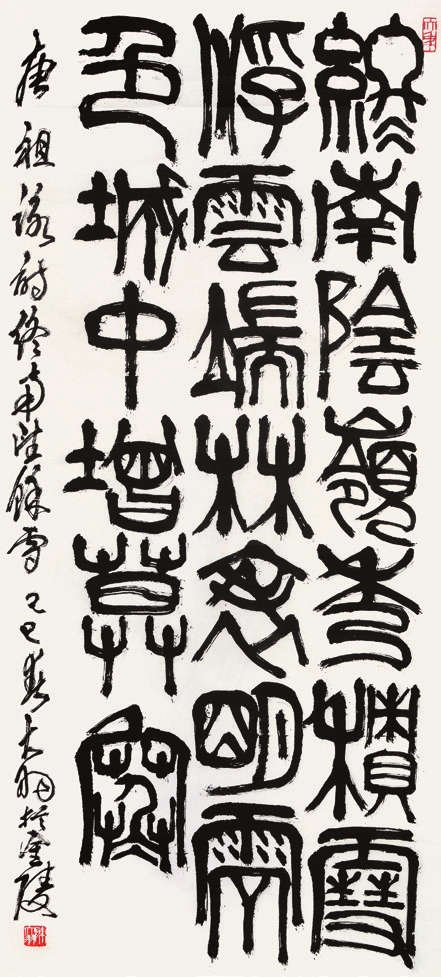 終南陰嶺秀積雪
浮雲端林表明霽
色城中增莫寒
唐祖詠詩終南望餘雪己巳春大羽於金陵